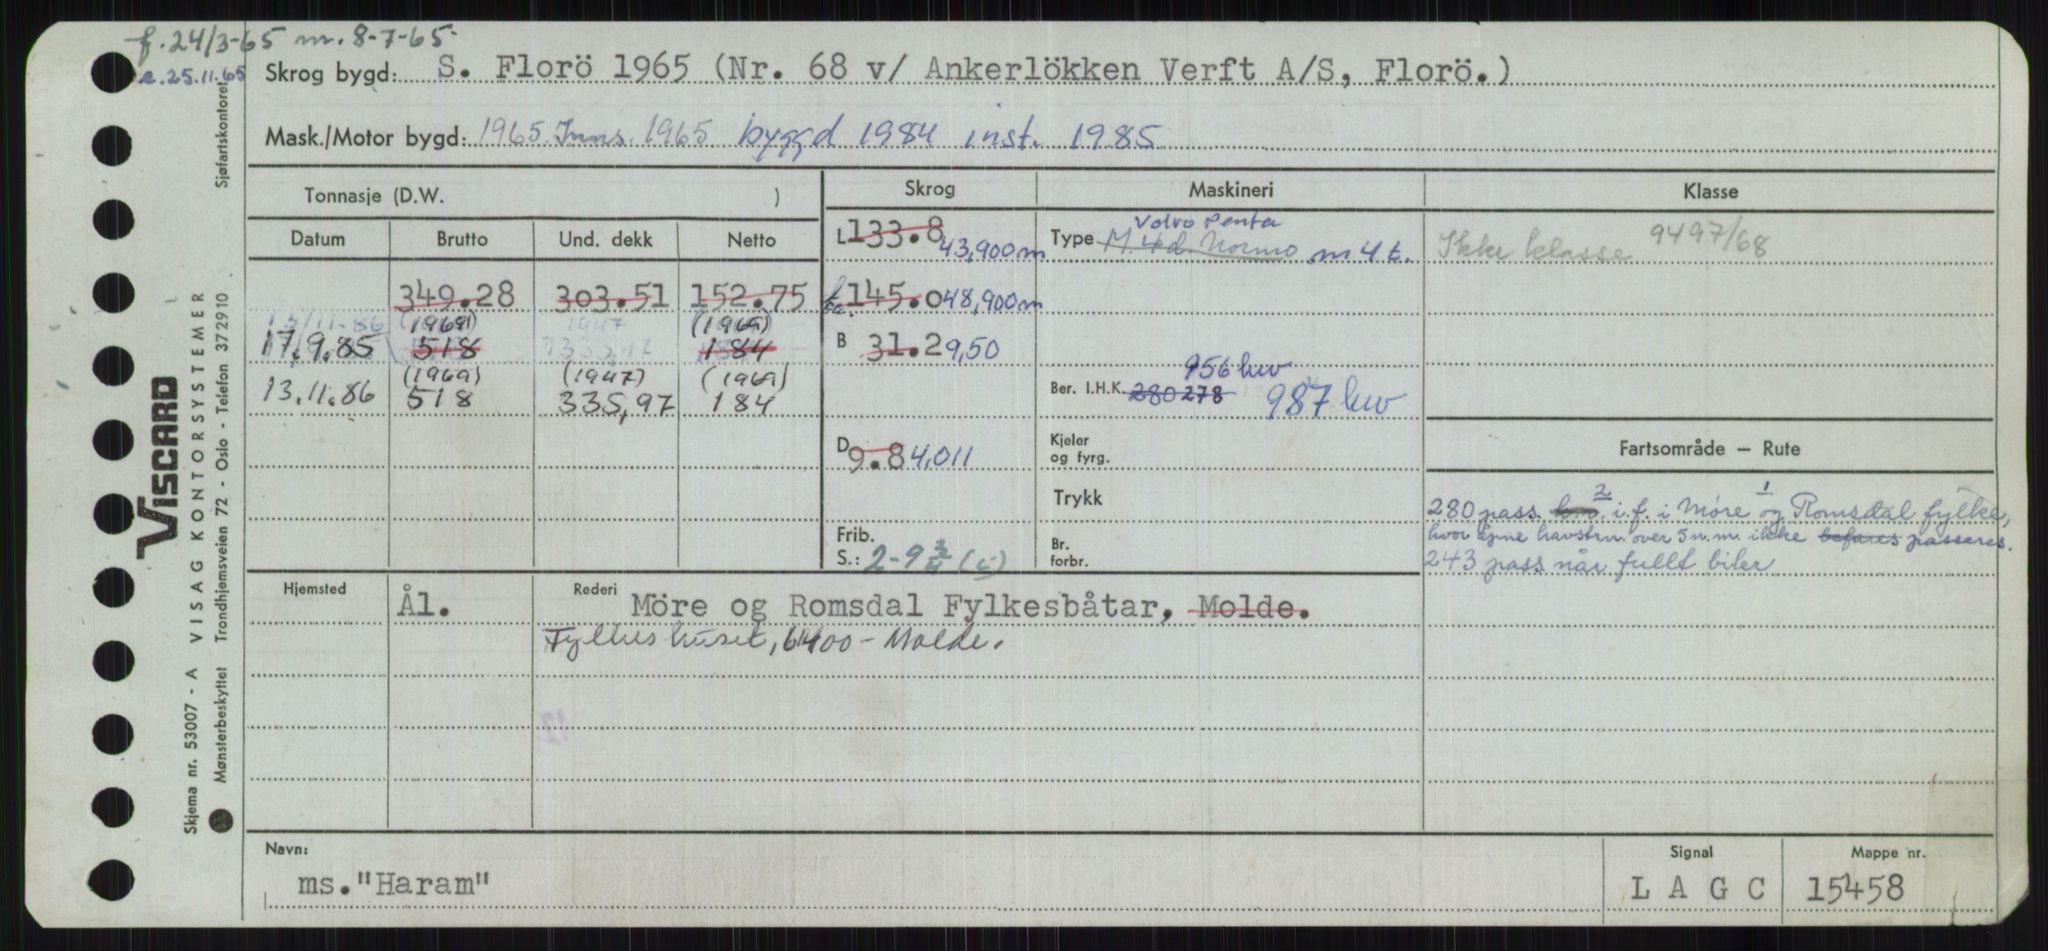 f. 24/3-65 m. 8-7-65
e. 25.11.65
Skrog bygd: S. Florö 1965 (Nr. 68 v/ Ankerlökken Verft A/S, Florö.)
Mask./Motor bygd: 1965. Inns. 1965 byggd 1984 inst. 1985
Tonnasje (D.W. )
Skrog Maskineri Klasse
Datum Brutto Und. dekk Netto
L 133.8 43,900m
Type M. 4 d. Normo Volvo Penta m 4 t.
Ikke klasse 9497/68
349.28 303.51 152.75
145.0 48,900m
13/11-86 (1969) 1947 (1969)
17.9.85 518 335,97 184
B 31.2 9,50
(1969) (1947) (1969)
13.11.86 518 335,97 184
Ber. I.H.K. 280 278 956 hw 987 hw
D 9.8 4,011
Kjeler
og fyrg.
Fartsområde — Rute
Trykk
280 pass. 2 i.f. i Møre 1 og Romsdal fylke,
hvor åpne havstrn. over 5 n.m. ikke befares passeres.
243 pass når fullt biler
Frib.
S.: 2-9 3/4 (i)
Br.
forbr.
Hjemsted Ål.
Rederi Möre og Romsdal Fylkesbåtar, Molde.
Fylkeshuset, 6400 - Molde.
Navn: ms. "Haram"
Signal LAGC
Mappe nr. 15458
Sjøfartskontoret
VISCARD
Skjema nr. 53007 - A VISAG KONTORSYSTEMER
Mønsterbeskyttet Trondhjemsveien 72 - Oslo - Telefon 372910